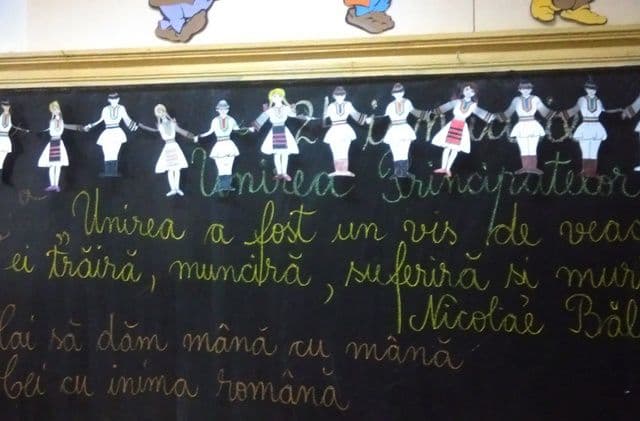 Unirea Principatelor
Unirea a fost un vis de veac
ei trăiră, munciră, suferiră și muri
Nicolae Băl
lai să dăm mână cu mână
Cei cu inima română